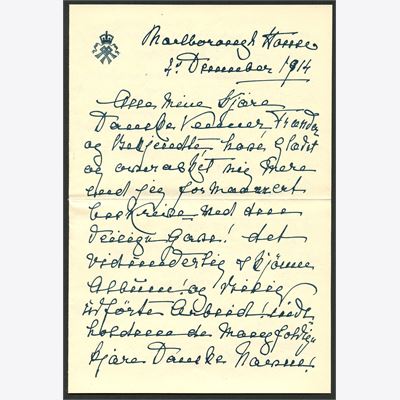 Marlborough House
3. December 1914
Alle mine Kjære
Danske Venner Frænder
og Bekjendte, have glædet
og overrasket mig mere
end jeg formaaer at
beskrive med deres
deilige Gave! det
vidunderlig skjønne
Album! og
udførte Arbeid! inde-
holdende de Mangfoldige
kjære Danske Navne!